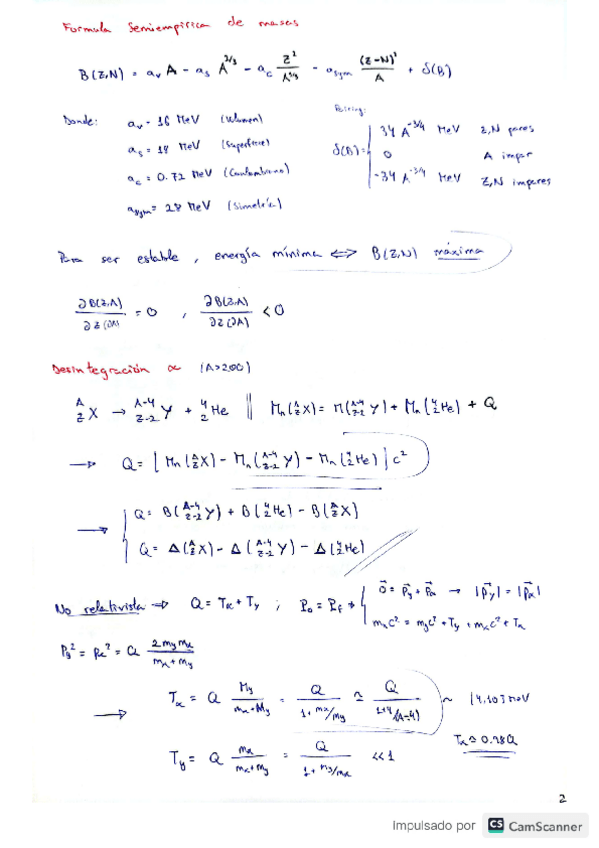 Formula Semiempírica de masas
B(Z,N) = a_v A - a_s A^{2/3} - a_c Z^2/A^{1/3} - a_sym (Z-N)^2/A + δ(B)
Donde: a_v = 16 MeV (Volumen)
a_s = 18 MeV (Superficie)
a_c = 0.72 MeV (Coulombiano)
a_sym = 28 MeV (Simetría)
Pairing:
δ(B) = { 34 A^{-3/4} MeV Z,N pares
0 A impar
-34 A^{-3/4} MeV Z,N impares
Para ser estable, energía mínima <=> B(Z,N) máxima
∂B(Z,A)/∂Z(∂A) = 0 , ∂B(Z,A)/∂Z(∂A) < 0
Desintegración α (A>200)
^A_Z X → ^{A-4}_{Z-2} Y + ^4_2 He || M_n(^A_Z X) = M(^{A-4}_{Z-2} Y) + M_n(^4_2 He) + Q
→ Q = [M_n(^A_Z X) - M_n(^{A-4}_{Z-2} Y) - M_n(^4_2 He)] c^2
→ { Q = B(^{A-4}_{Z-2} Y) + B(^4_2 He) - B(^A_Z X)
Q = Δ(^A_Z X) - Δ(^{A-4}_{Z-2} Y) - Δ(^4_2 He)
No relativista => Q = T_α + T_y ; P_0 = P_f => { 0 = P_y + P_α → |P_y| = |P_α|
m_x c^2 = m_y c^2 + T_y + m_α c^2 + T_α
P_y^2 = P_α^2 = Q 2 m_y m_α / (m_α + m_y)
→ T_α = Q M_y/(m_α + M_y) = Q/(1 + m_α/m_y) ≃ Q/(1+4/(A-4)) ~ [4,10] MeV
T_α ≃ 0.98Q
T_y = Q m_α/(m_α + m_y) = Q/(1 + m_y/m_α) << 1
2
Impulsado por CS CamScanner